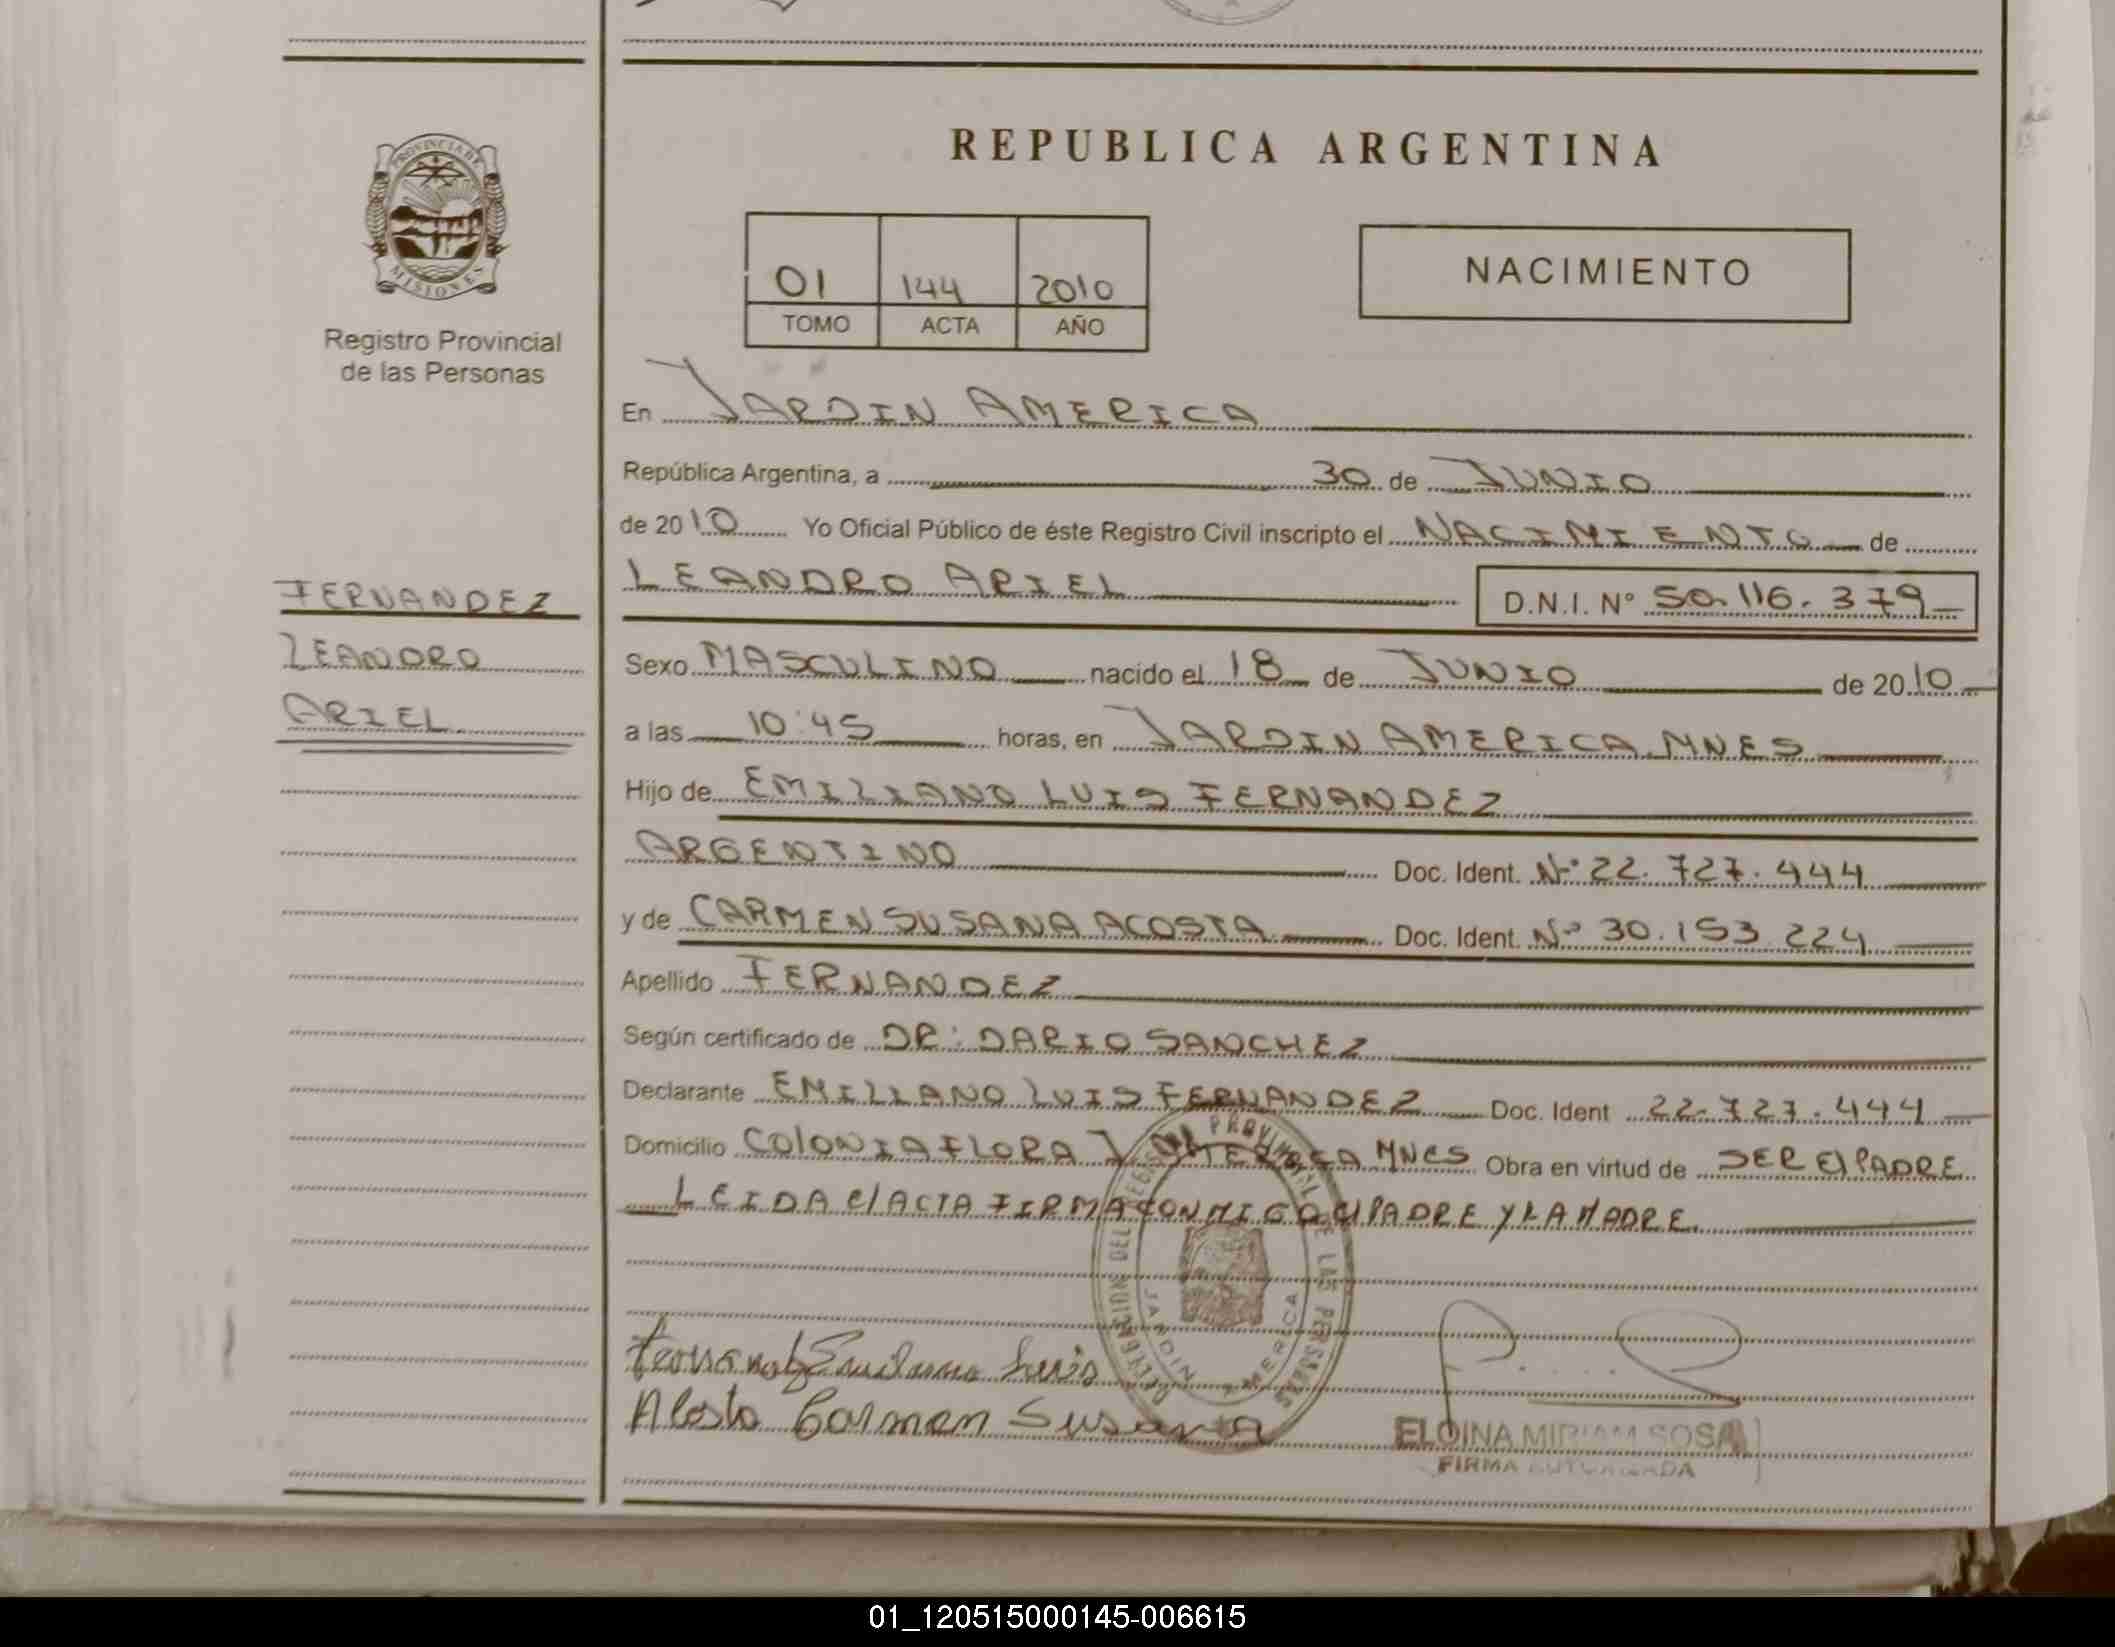 REPUBLICA ARGENTINA
PROVINCIA DE
MISIONES
Registro Provincial
de las Personas
01 144 2010
TOMO ACTA AÑO
NACIMIENTO
En JARDIN AMERICA
República Argentina, a 30 de JUNIO
de 2010 Yo Oficial Público de éste Registro Civil inscripto el NACIMIENTO de
LEANDRO ARIEL D.N.I. Nº 50.116.379
FERNANDEZ
LEANDRO
ARIEL
Sexo MASCULINO nacido el 18 de JUNIO de 2010
a las 10:45 horas, en JARDIN AMERICA. MNES
Hijo de EMILIANO LUIS FERNANDEZ
ARGENTINO Doc. Ident. Nº 22.727.444
y de CARMEN SUSANA ACOSTA Doc. Ident. Nº 30.153.224
Apellido FERNANDEZ
Según certificado de DR: DARIO SANCHEZ
Declarante EMILIANO LUIS FERNANDEZ Doc. Ident 22.727.444
Domicilio COLONIA FLORA J. AMERICA MNES Obra en virtud de SER El PADRE
LEIDA el ACTA FIRMA CONMIGO el PADRE Y LA MADRE.
DELEGACION DEL REGISTRO PROVINCIAL DE LAS PERSONAS
JARDIN AMERICA
Fernandez Emiliano Luis
Acosta Carmen Susana
ELOINA MIRIAM SOSA
FIRMA AUTORIZADA
01_120515000145-006615